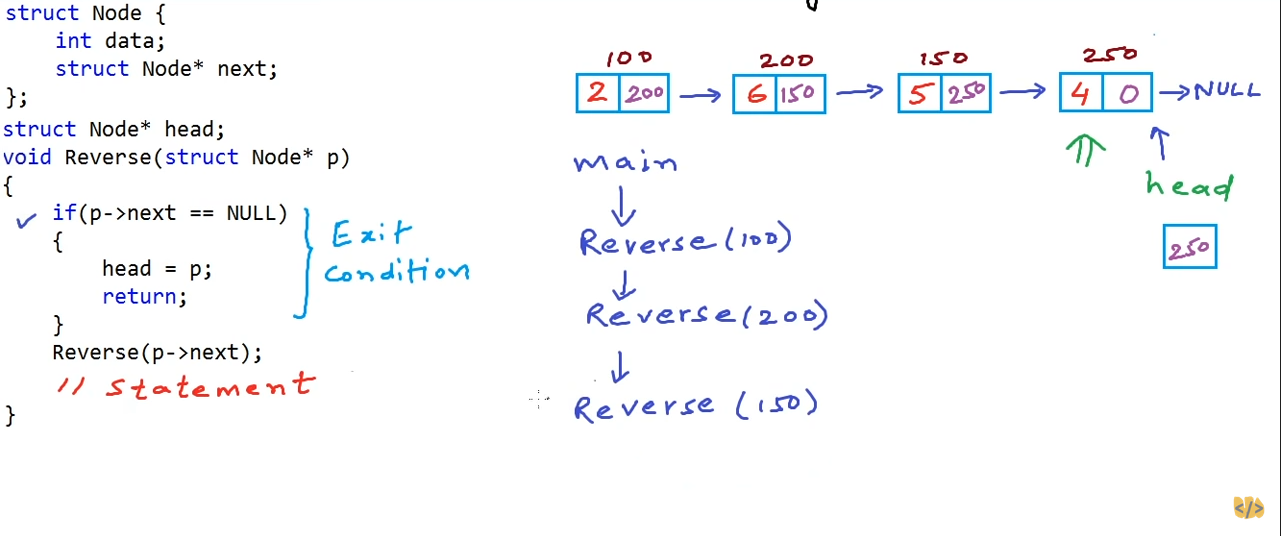 struct Node {
int data;
struct Node* next;
};
struct Node* head;
void Reverse(struct Node* p)
{
if(p->next == NULL)
{
head = p;
return;
}
Reverse(p->next);
// statement
}
Exit
condition
100 200 150 250
2 200 → 6 150 → 5 250 → 4 0 → NULL
head
250
main
↓
Reverse (100)
↓
Reverse (200)
↓
Reverse (150)
</>